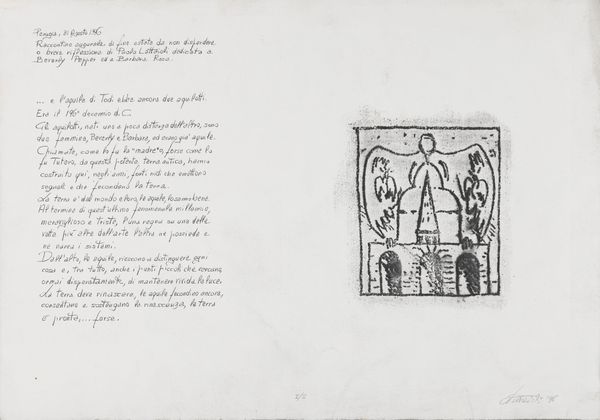 Perugia, 31 Agosto 1996
Raccontino augurale di fine estate da non disperdere
o breve riflessione di Paolo Lattaioli dedicata a
Beverly Pepper ed a Barbara Rose.
... e l'aquila di Todi ebbe ancora due aquilotti.
Era il 196° decennio d.C.
Gli aquilotti, nati uno a poca distanza dall'altro, sono
due femmine, Beverly e Barbara, ed erano già aquile.
Chiamate, come lo fu la "madre", forse come lo
fu Tutero, da questa potente, terra antica, hanno
costruito qui, negli anni, forti nidi che emettono
segnali e che fecondano la terra.
La terra è del mondo e loro, le aquile, lo sanno bene.
Al termine di quest'ultimo fenomenale millennio,
meraviglioso e triste, l'una regna su una delle
vette più alte dell'arte l'altra ne possiede e
ne narra i sistemi.
Dall'alto, le aquile, riescono a distinguere ogni
cosa e, tra tutto, anche i punti piccoli che cercano,
ormai disperatamente, di mantenere vivida la luce.
La terra deve rinascere, le aquile fecondino ancora,
consentano e sostengano la rinascenza, la terra
è pronta,... forse.